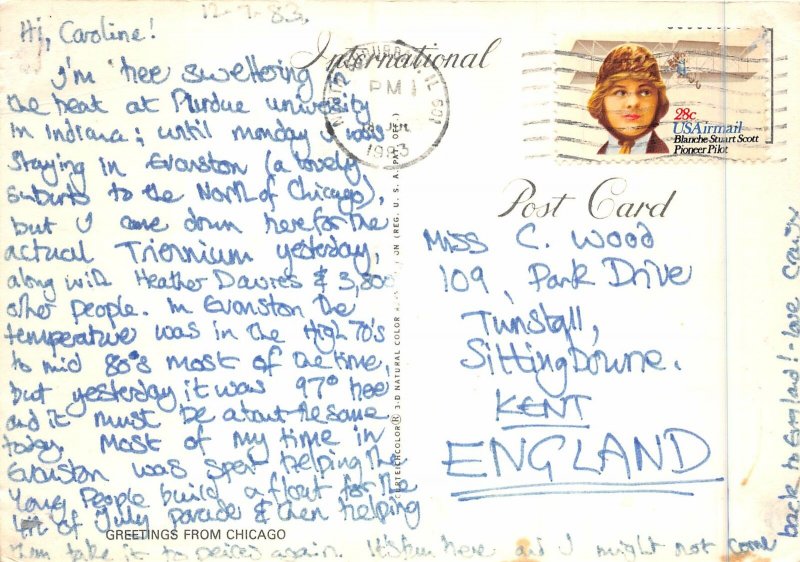 12-7-83.
Hi, Caroline!
I'm hee sweltering in
the heat at Purdue university
in Indiana; until monday I was
staying in Evanston (a lovely
suburb to the North of Chicago),
but I came down here for the
actual Triennium yesterday,
along with Heather Davies & 3,800
other people. In Evanston the
temperature was in the High 70's
to mid 80's most of the time,
but yesterday it was 97° hee
and it must be about the same
today. Most of my time in
Evanston was spent helping the
Young People build a float for the
4th of July parade & then helping
them take it to peices again. It's fun here and I might not come
back to England! - love
GREETINGS FROM CHICAGO
International
Post Card
PM
JUL
1983
28c
USAirmail
Blanche Stuart Scott
Pioneer Pilot
Miss C. Wood
109, Park Drive
Tunstall,
Sittingbourne.
KENT
ENGLAND
3-D NATURAL COLOR
(REG. U.S.A. PAT. OFF.)